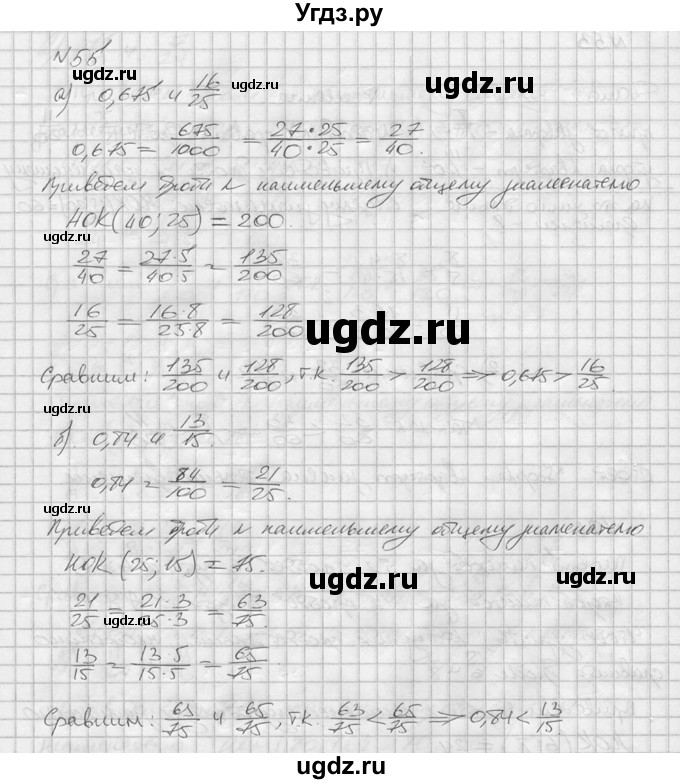 Угдз.ру
N 55
ugdz.ru ugdz.ru
а) 0,675 и 16/25
ugdz.ru
0,675 = 675/1000 = 27·25/40·25 = 27/40.
Приведем дроби к наименьшему общему знаменателю
НОК(40; 25) = 200.
ugdz.ru
27/40 = 27·5/40·5 = 135/200
16/25 = 16·8/25·8 = 128/200
ugdz.ru ugdz.ru
Сравним: 135/200 и 128/200, т.к. 135/200 > 128/200 => 0,675 > 16/25
ugdz.ru
б) 0,84 и 13/15.
0,84 = 84/100 = 21/25.
ugdz.ru
Приведем дроби к наименьшему общему знаменателю
НОК (25; 15) = 75.
ugdz.ru ugdz.ru
21/25 = 21·3/25·3 = 63/75
ugdz.ru
13/15 = 13·5/15·5 = 65/75.
Сравним: 63/75 и 65/75, т.к. 63/75 < 65/75 => 0,84 < 13/15.
ugdz.ru ugdz.ru ugdz.ru